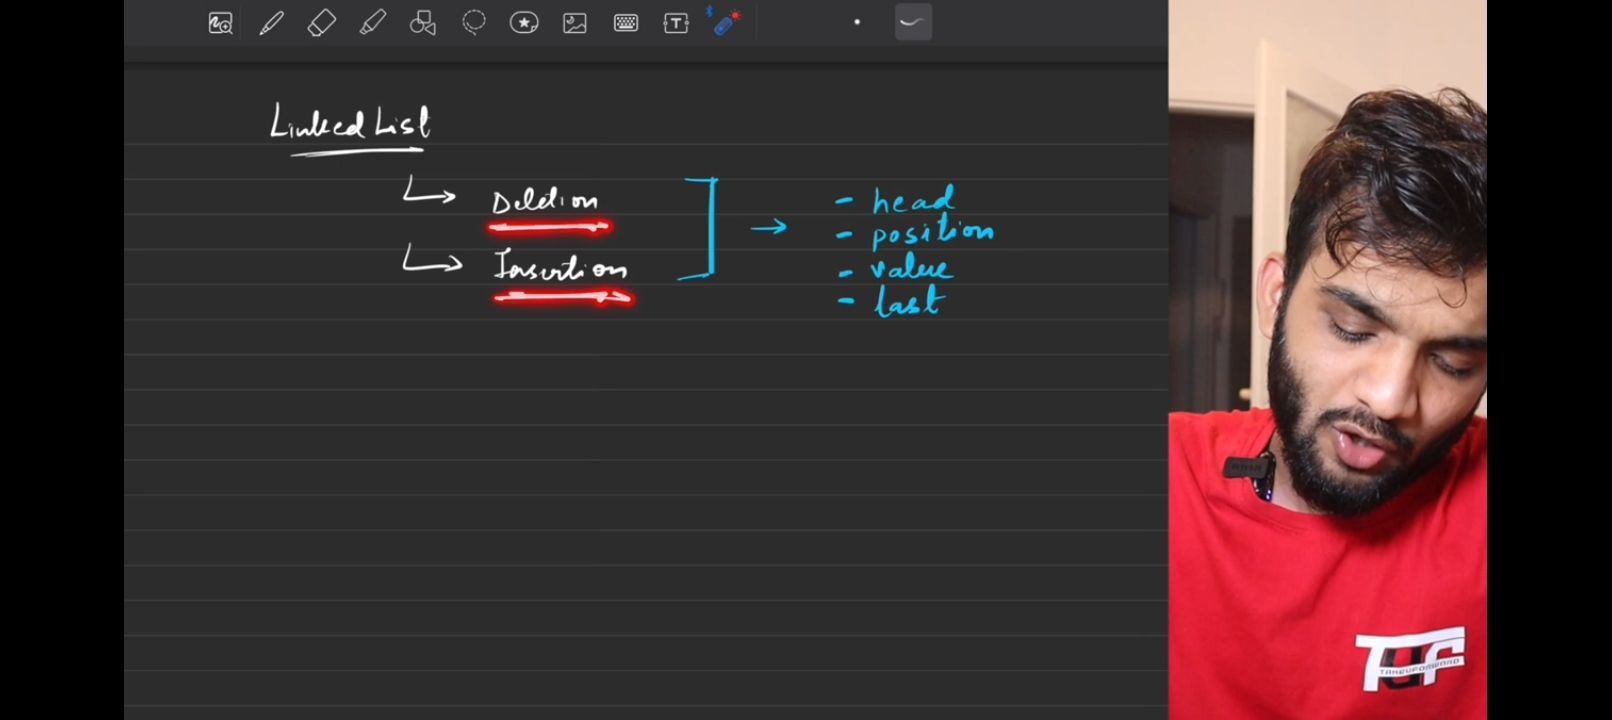 Linked List
↳ Deletion
↳ Insertion
→
- head
- position
- value
- last
T
TUF
TAKEUFORWARD